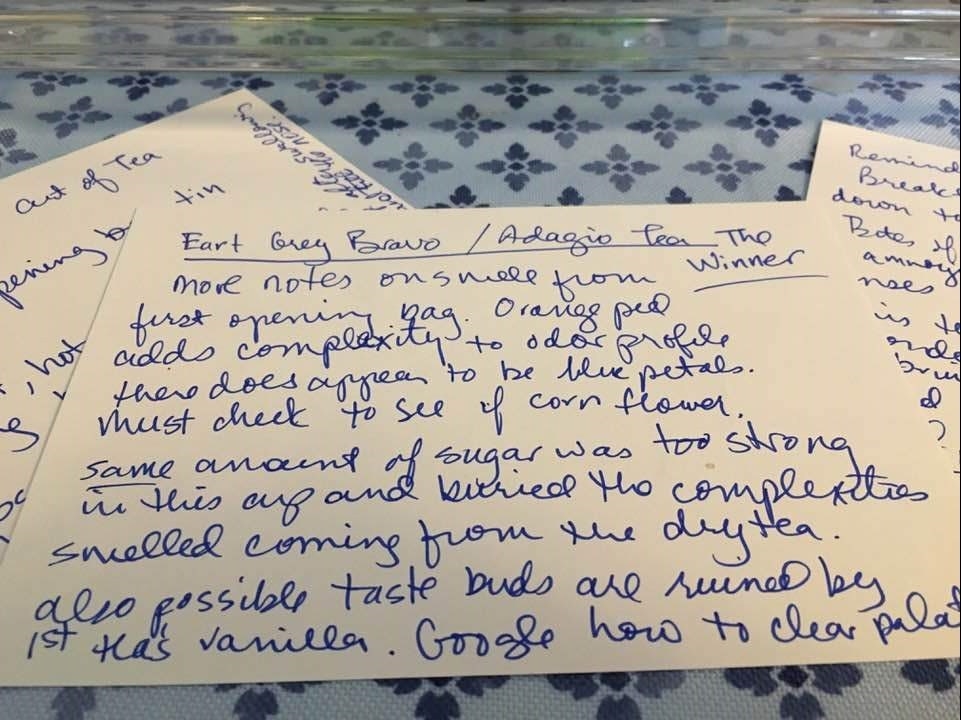 out of Tea
tin
opening b
, hot
After swallowing
Remind
Break
down to
Botes if
amnoy
noses
is te
?
Eart Grey Bravo / Adagio Tea The
Winner
more notes on smell from
first opening bag. Orange peel
adds complexity to odor profile
there does appear to be blue petals.
Must check to see if corn flower.
same amount of sugar was too strong
in this cup and buried the complexities
smelled coming from the dry tea.
also possible taste buds are ruined by
1st tea's vanilla. Google how to clear palat